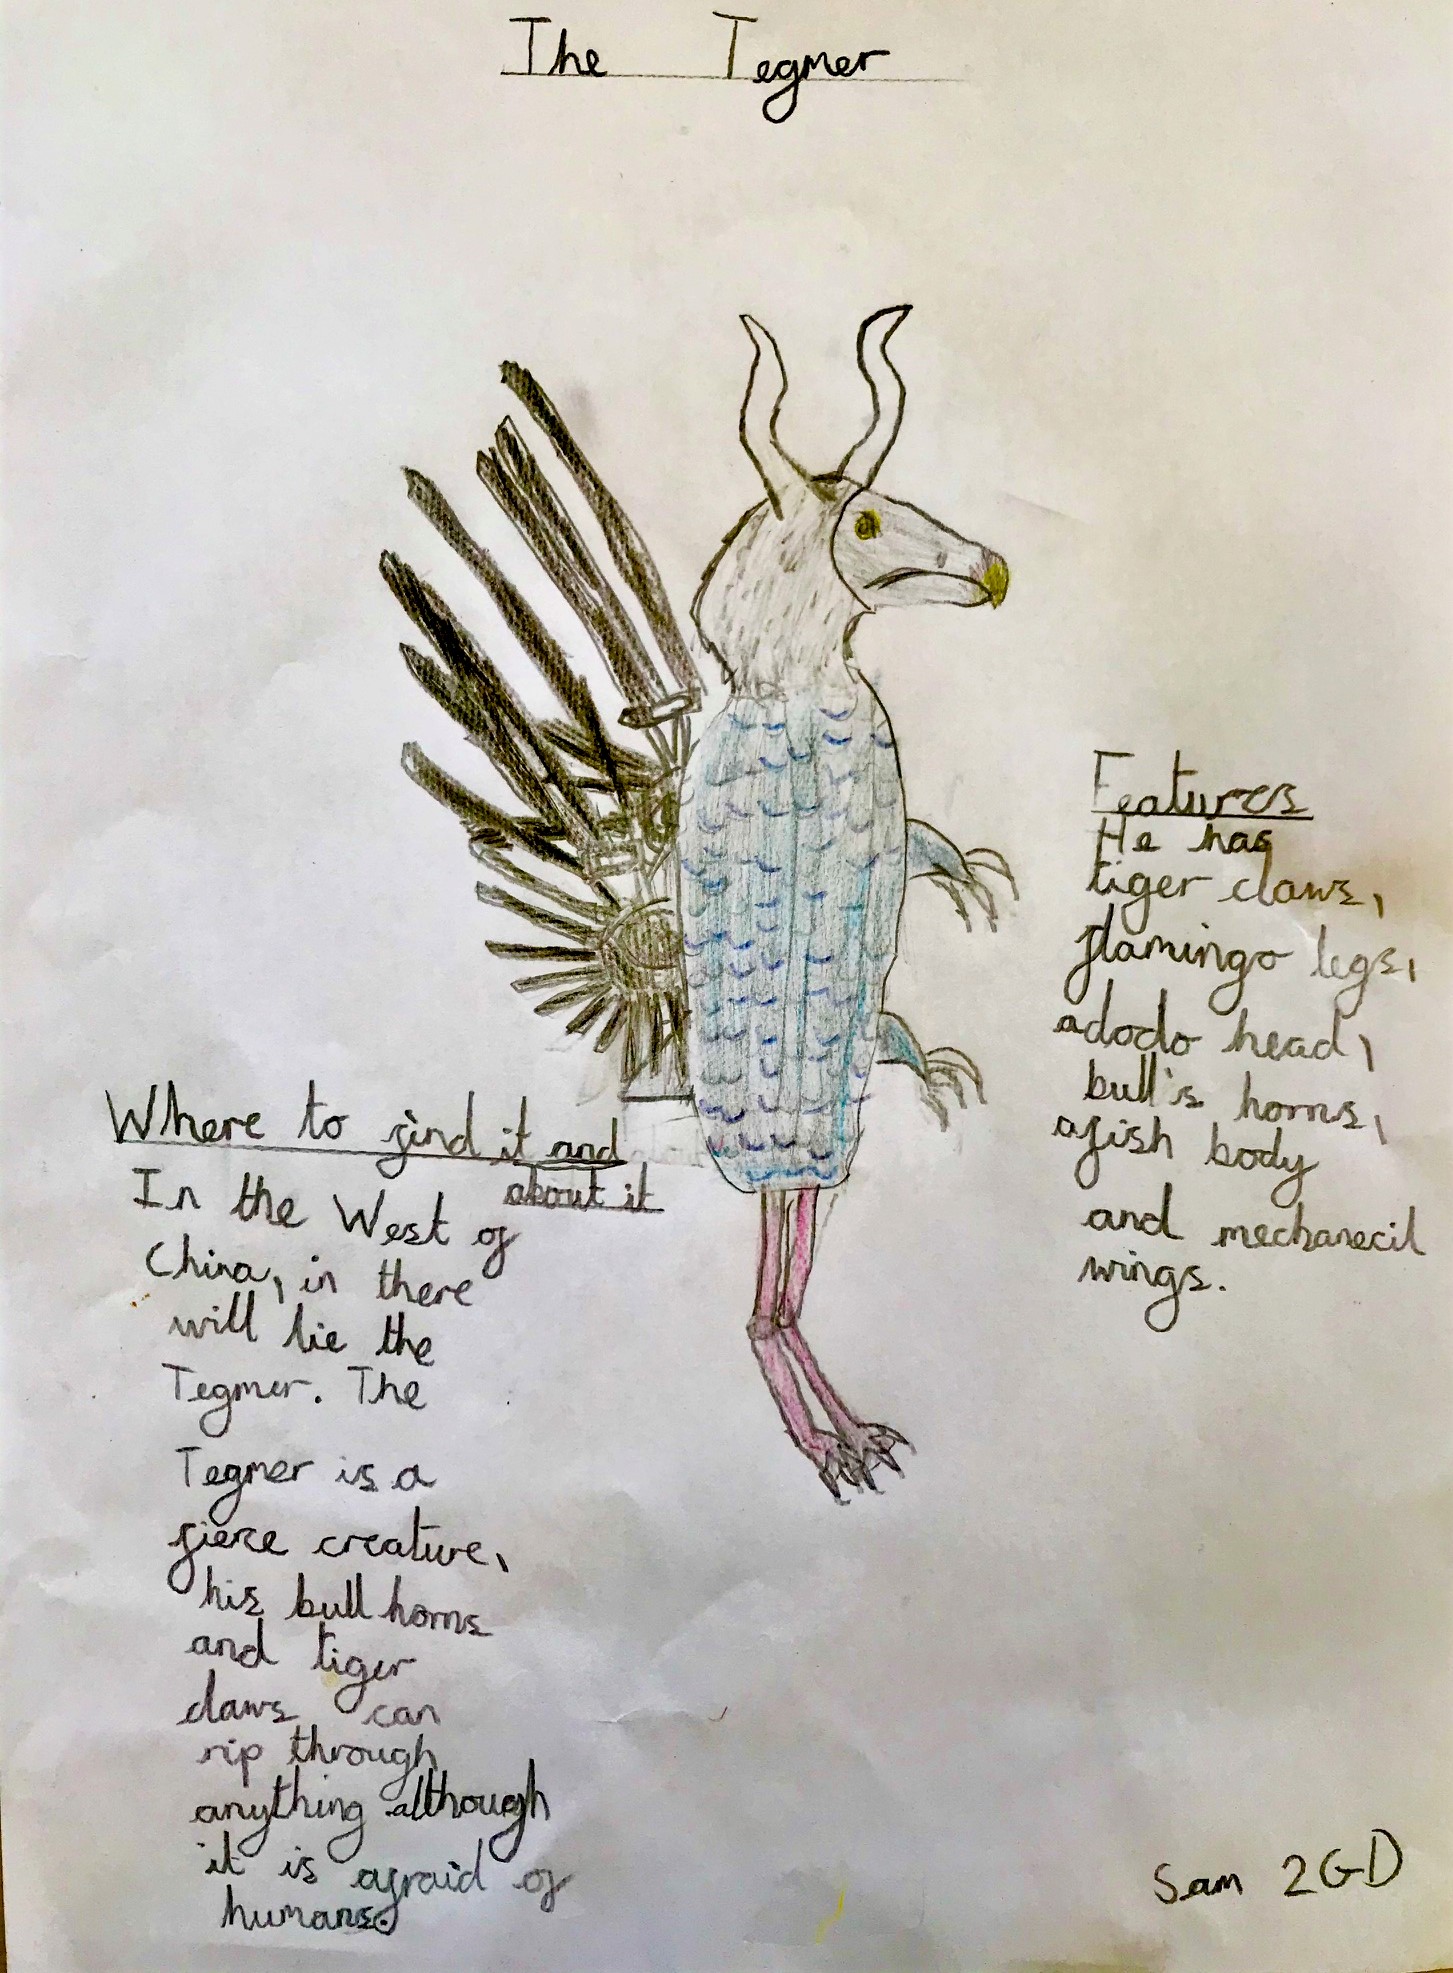 The Tegmer
Features
He has
tiger claws,
flamingo legs,
a dodo head,
bull's horns,
a fish body
and mechanecil
wings.
Where to find it and
about it
In the West of
China, in there
will lie the
Tegmer. The
Tegmer is a
fierce creature,
his bull horns
and tiger
claws can
rip through
anything although
it is afraid of
humans.
Sam 2GD